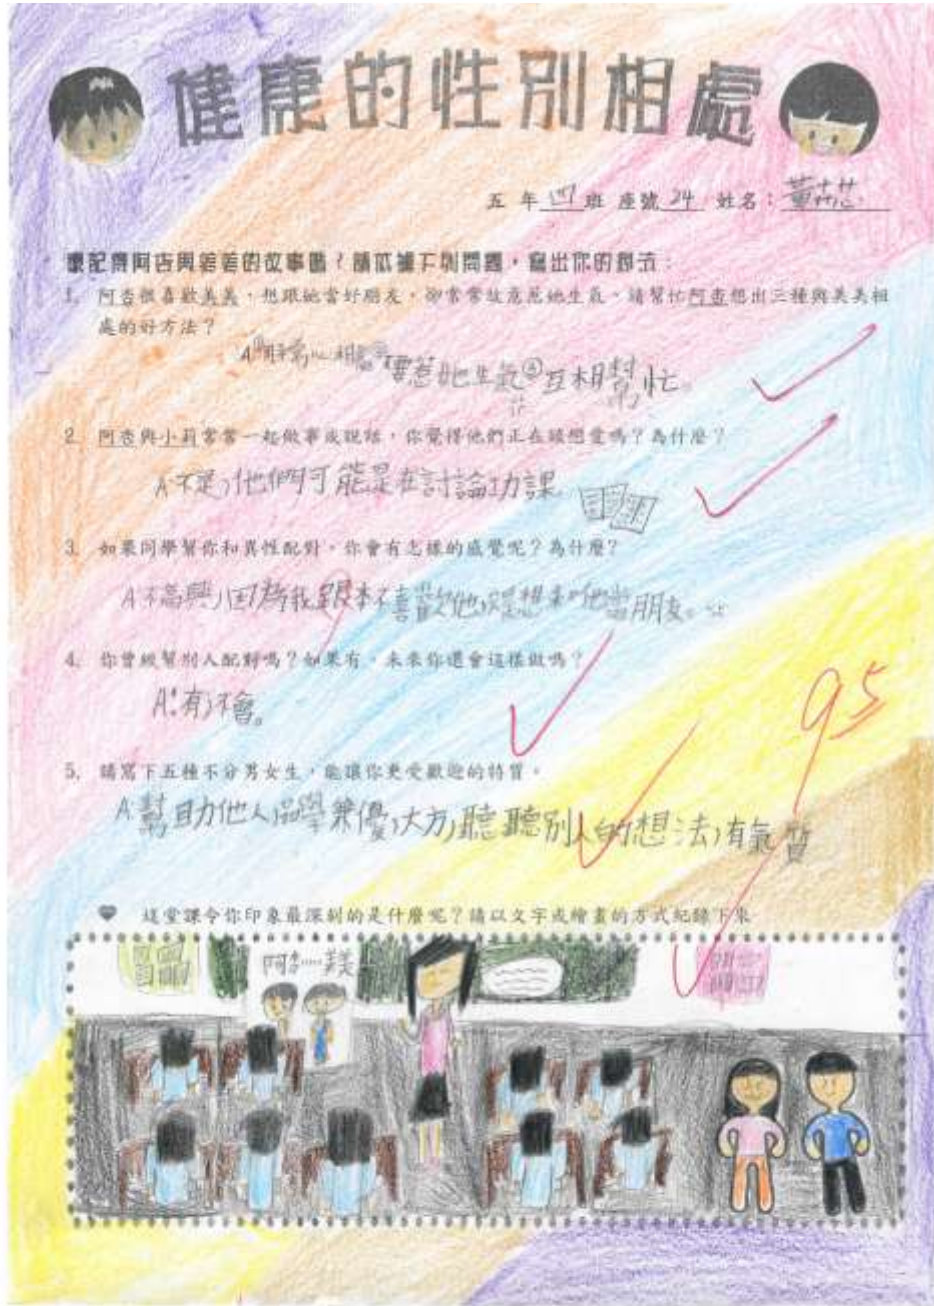 健康的性別相處
五 年 四 班 座號 24 姓名：董芯
還記得阿杏與美美的故事嗎？請依據下列問題，寫出你的想法：
1. 阿杏很喜歡美美，想跟她當好朋友，卻常常故意惹她生氣，請幫忙阿杏想出三種與美美相
處的好方法？
惹她生氣③互相幫忙。
2. 阿杏與小莉常常一起做事或說話，你覺得他們正在談戀愛嗎？為什麼？
A不是，他們可能是在討論功課。
3. 如果同學幫你和異性配對，你會有怎樣的感覺呢？為什麼？
A不高興，因為我跟本不喜歡他，只是想和他當朋友。
4. 你曾經幫別人配對嗎？如果有，未來你還會這樣做嗎？
A:有，不會。
5. 請寫下五種不分男女生，能讓你更受歡迎的特質。
A幫助他人，品學兼優，大方，聽聽別人的想法，有氣質
95
這堂課令你印象最深刻的是什麼呢？請以文字或繪畫的方式紀錄下來